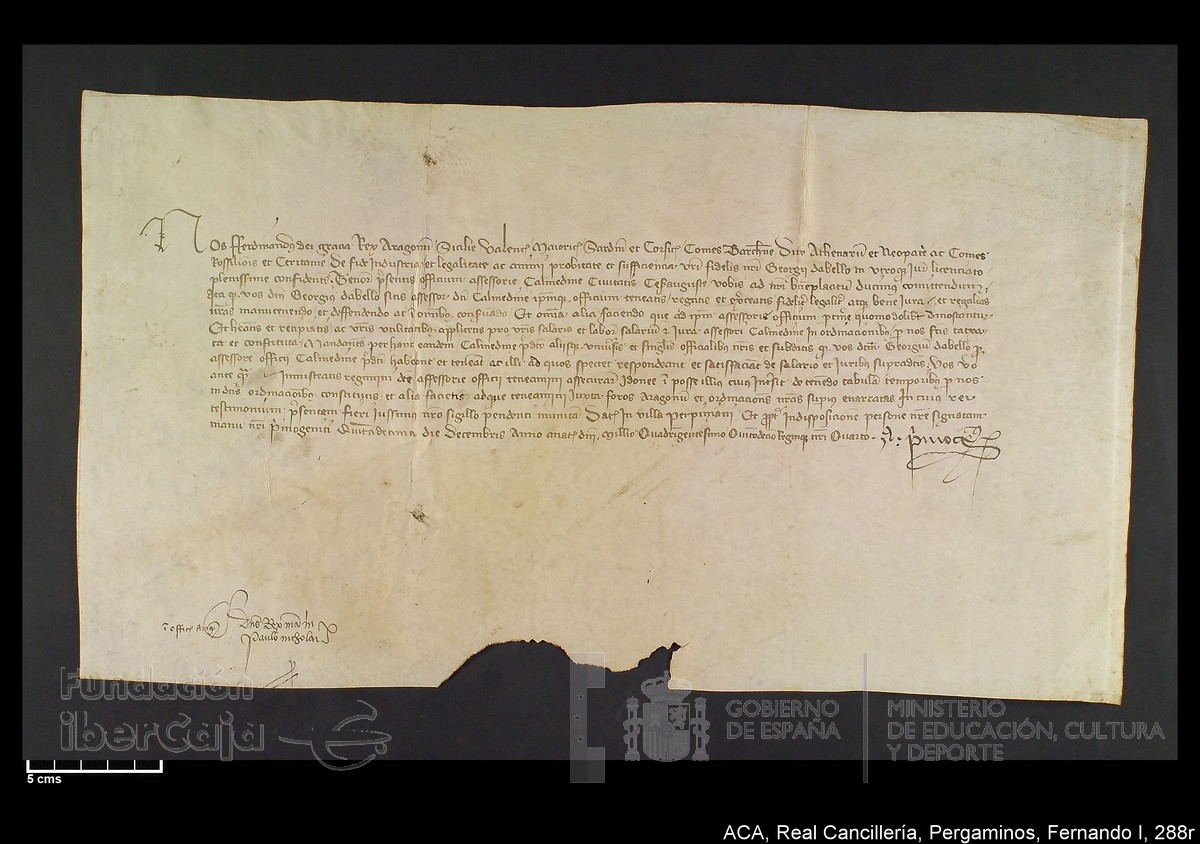 Nos fferdinandus dei gracia Rex Aragonum Sicilie Valencie Maioricarum Sardinie et Corsice Comes Barchinone Dux Athenarum et Neopatrie ac Comes
Rossilionis et Ceritanie De fide Industria et legalitate ac animi probitate et sufficiencia vestri fidelis nostri Georgii dabello in utroque Iure licenciato
plenissime confidentes Tenore presentis officium assessorie Calmedine Civitatis Cesarauguste vobis ad nostrum beneplacitum ducimus comittendum
Ita quod vos dictus Georgius dabello sitis assessor dicti Calmedine ipsumque officium teneatis regatis et exerceatis fideliter legaliter atque bene Iura et regalias
nostras manutenendo et deffendendo ac in omnibus conservando Et omnia alia faciendo que ad ipsum assessorie officium pertinere quomodolibet dinoscuntur
Et habeatis et recipiatis ac vestris utilitatibus applicetis pro vestris salario et labore salarium et Iura assessori Calmedine in ordinacionibus per nos factis taxa
ta et constituta Mandantes per hanc eandem Calmedine predicto aliisque universis et singulis officialibus nostris et subditis quod vos dictum Georgium dabello pro
assessore officii Calmedine predicti habeant et teneant ac illi ad quos spectet respondeant et satisfaciant de salario et Iuribus supradictis Vos vero
ante quam regimini dicte assessorie officii teneamini assecurare Idonee in posse illius cuius Intersit de tenendo tabulam temporibus per nos
in dictis ordinacionibus constitutis et alia facietis ad que teneamini Iuxta foros Aragonum et ordinaciones nostras superius enarratas In cuius rei
testimonium presentem fieri Iussimus nostro sigillo pendenti munitam Datum in villa Perpiniani Et propter Indisposicionem persone nostre signatam
manu nostri primogeniti Quintadecima die Decembris Anno a nativitate domini Millesimo Quadringentesimo Quintodecimo Regnique nostri Quarto
Dominus Rex mandavit
Paulo nicholai
Fundación
iberCaja
GOBIERNO
DE ESPAÑA
MINISTERIO
DE EDUCACIÓN, CULTURA
Y DEPORTE
5 cms
ACA, Real Cancillería, Pergaminos, Fernando I, 288r